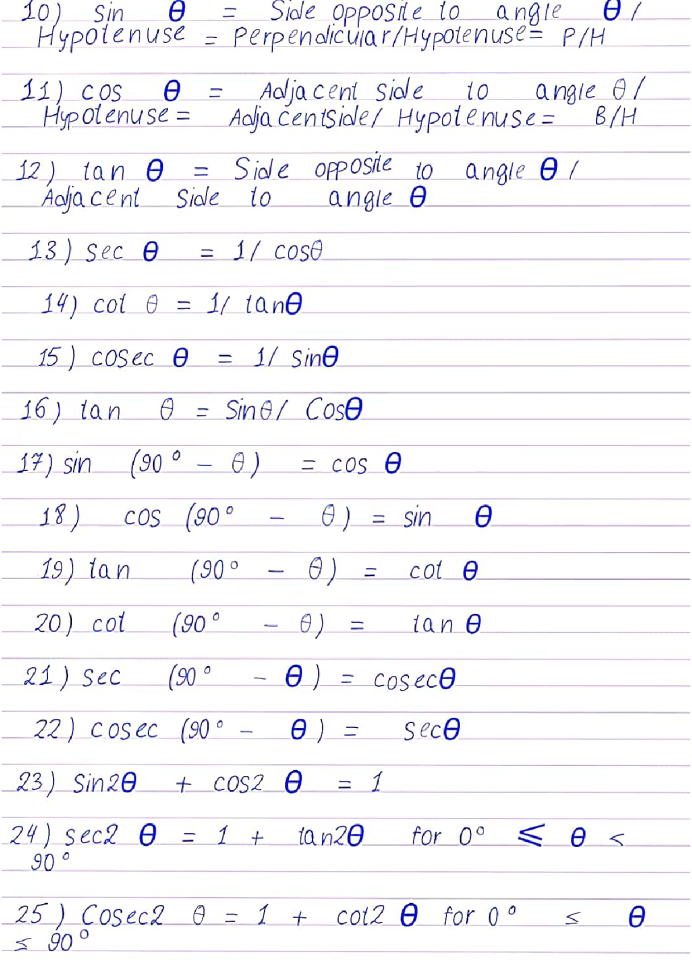 10) Sin θ = Side opposite to angle θ /
Hypotenuse = Perpendicular/Hypotenuse= P/H
11) cos θ = Adjacent side to angle θ /
Hypotenuse = AdjacentSide/ Hypotenuse = B/H
12) tan θ = Side opposite to angle θ /
Adjacent Side to angle θ
13) Sec θ = 1/ cosθ
14) cot θ = 1/ tanθ
15) cosec θ = 1/ sinθ
16) tan θ = Sinθ/ Cosθ
17) sin (90° - θ) = cos θ
18) cos (90° - θ) = sin θ
19) tan (90° - θ) = cot θ
20) cot (90° - θ) = tan θ
21) sec (90° - θ) = cosecθ
22) cosec (90° - θ) = secθ
23) Sin2θ + cos2 θ = 1
24) sec2 θ = 1 + tan2θ for 0° ≤ θ <
90°
25) Cosec2 θ = 1 + cot2 θ for 0° ≤ θ
≤ 90°